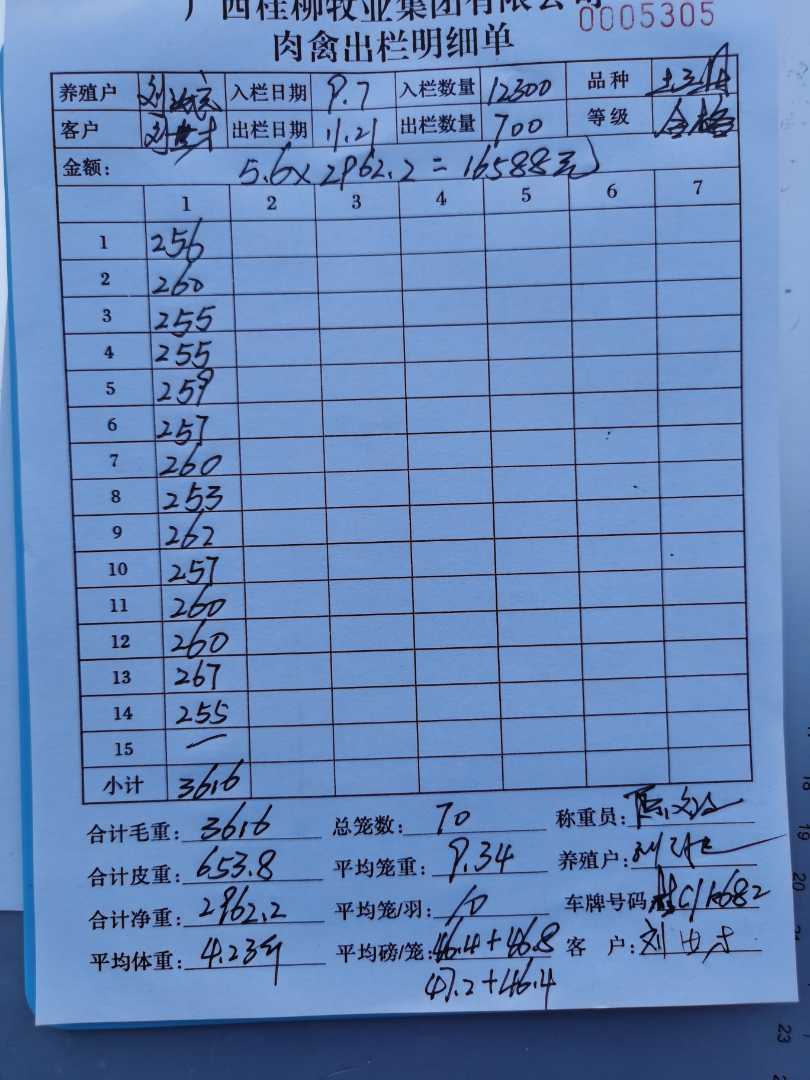 广西桂柳牧业集团有限公司
0005305
肉禽出栏明细单
养殖户 刘 入栏日期 9.7 入栏数量 12300 品种
客户 刘 出栏日期 11.21 出栏数量 700 等级 合格
金额: 5.6×2962.2=16588元
1 2 3 4 5 6 7
1 256
2 260
3 255
4 255
5 259
6 257
7 260
8 253
9 262
10 257
11 260
12 260
13 267
14 255
15 —
小计 3616
合计毛重: 3616 总笼数: 70 称重员: 陈
合计皮重: 653.8 平均笼重: 9.34 养殖户: 刘
合计净重: 2962.2 平均笼/羽: 10 车牌号码 桂C11682
平均体重: 4.23斤 平均磅/笼: 46.4+46.8 客 户: 刘
47.2+46.4
23